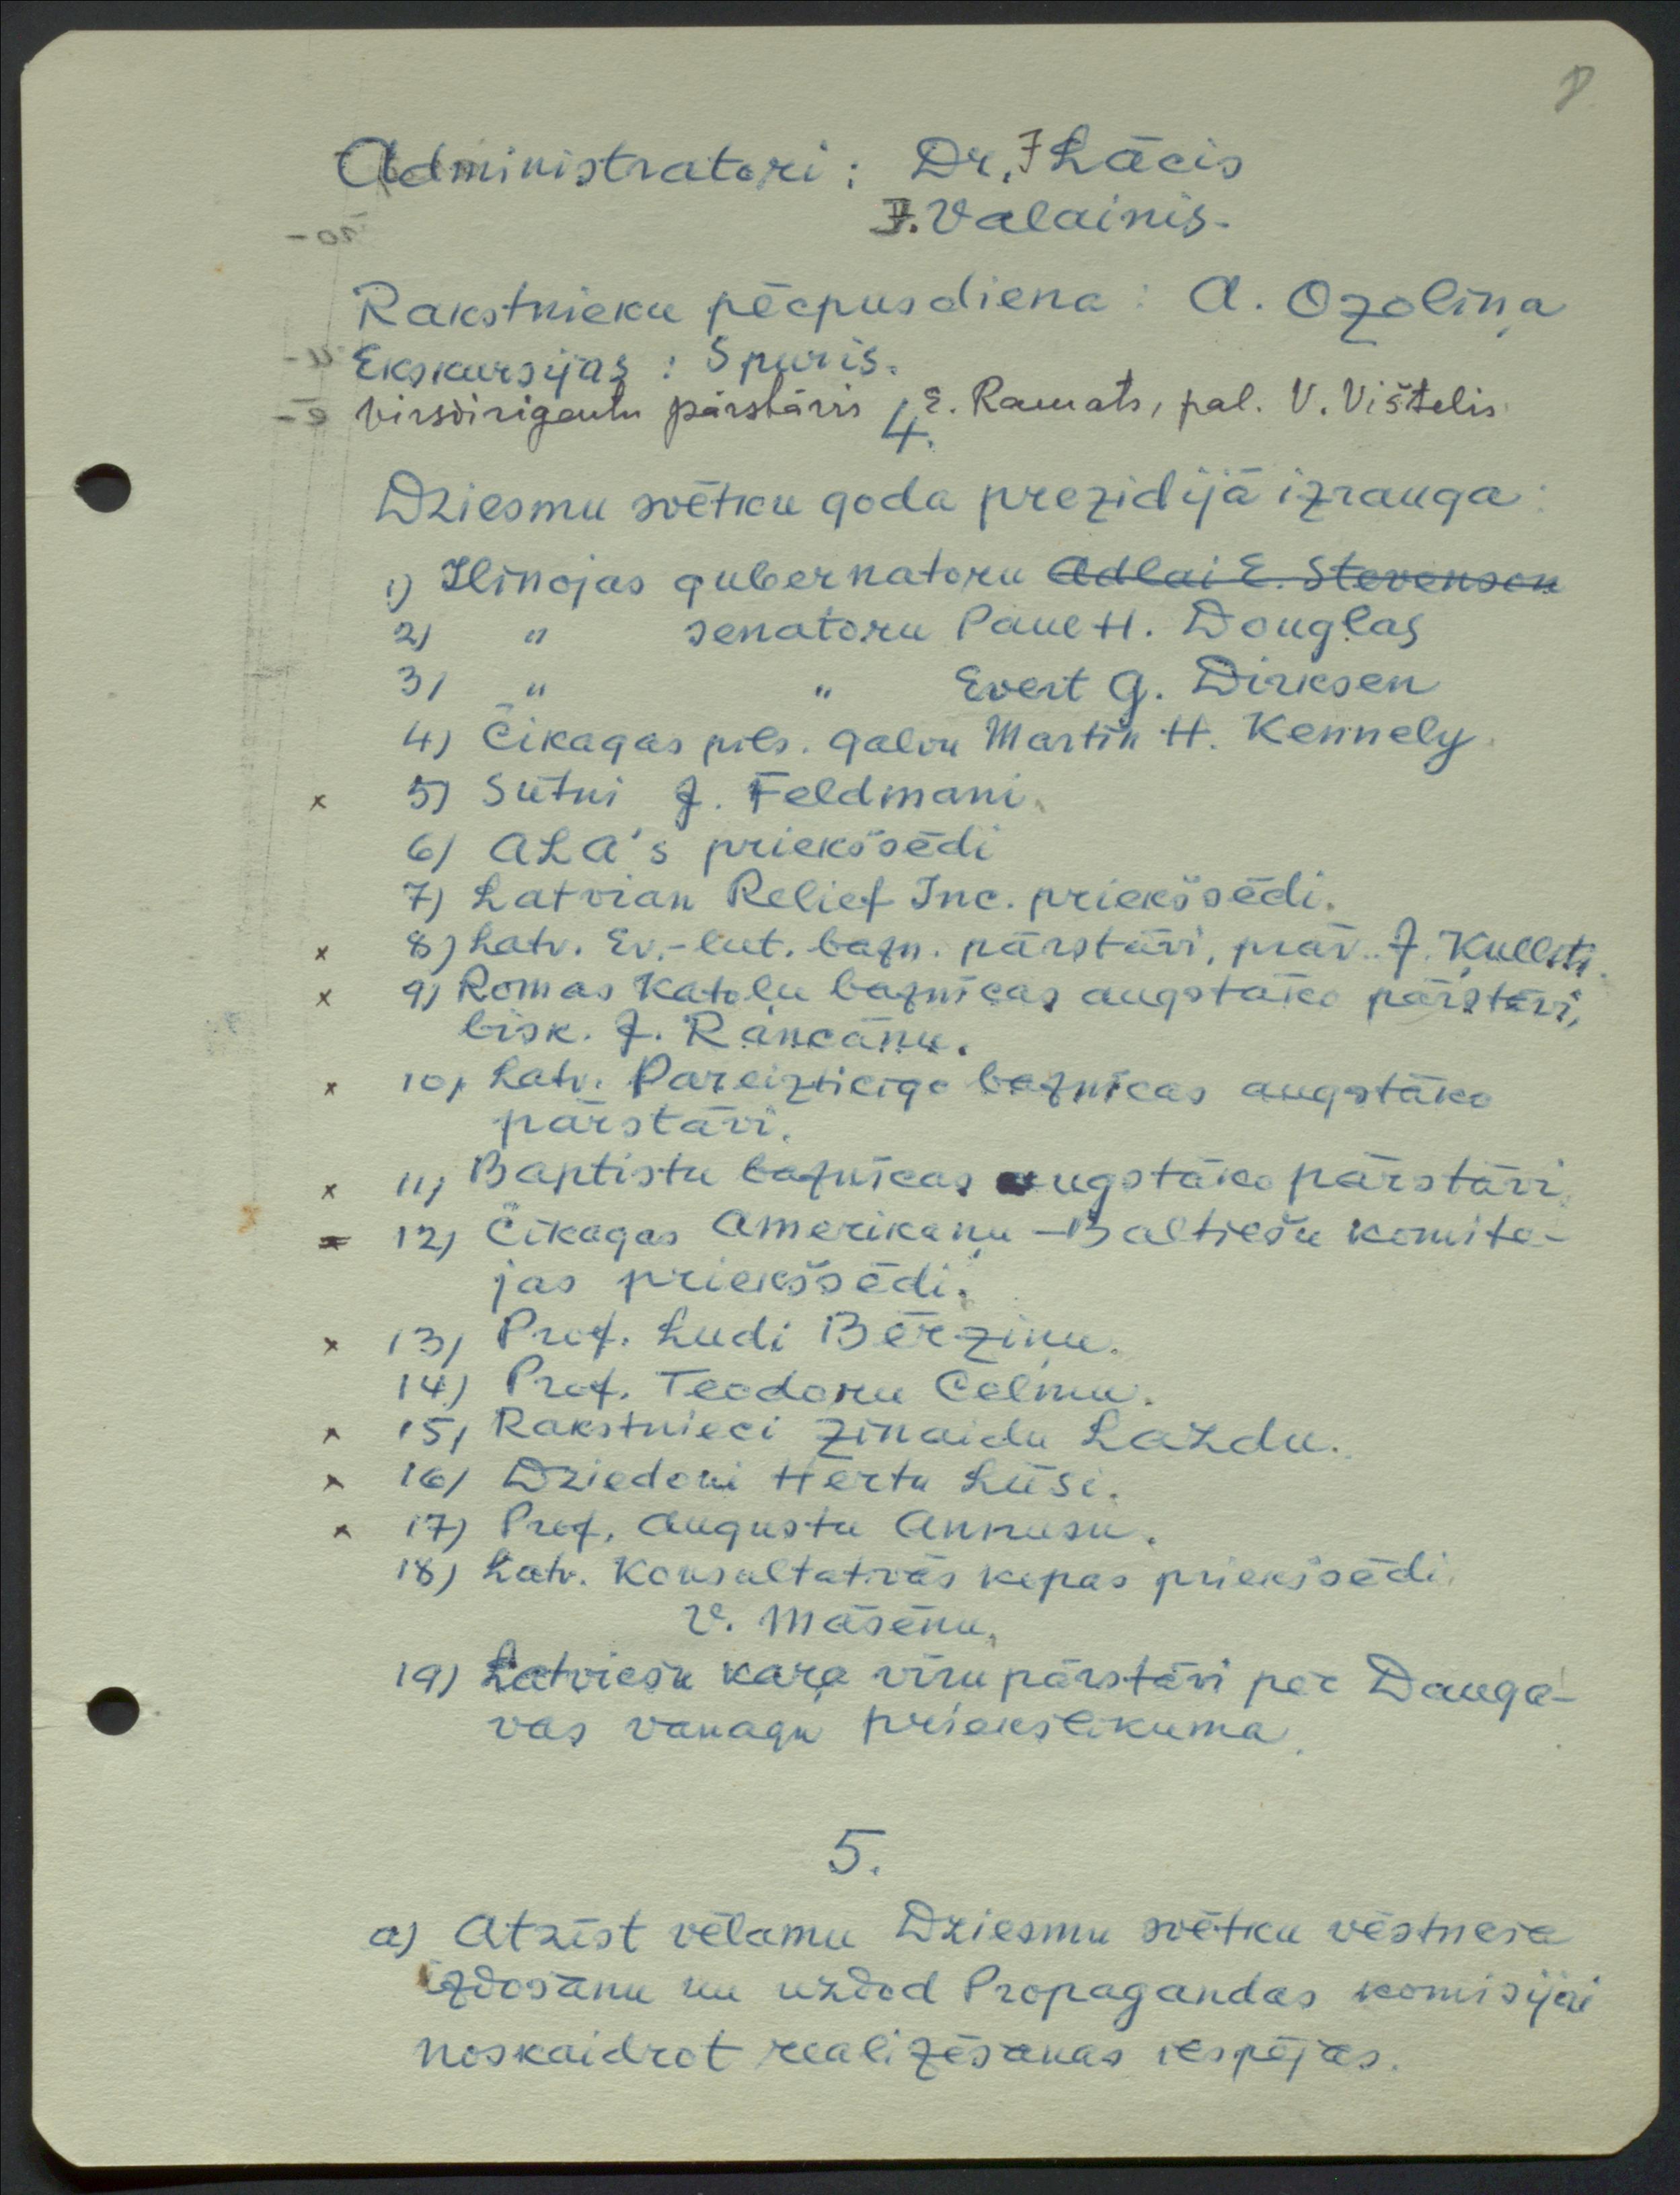 8
Administratori: Dr. J Lācis
J. Valainis.
Rakstnieku pēcpusdiena: A. Ozoliņa
Ekskursijas: Spuris.
Virsdirigentu pārstāvis E. Ramats, pal. V. Vištelis
4.
Dziesmu svētku goda prezidijā izrauga:
1) Ilinojas gubernatoru Adlai E. Stevenson
2) " senatoru Paul H. Douglas
3) " " Evert G. Dirksen
4) Čikagas pils. galvu Martin H. Kennely
x 5) Sūtni J. Feldmani.
6) ALA's priekšsēdi
7) Latvian Relief Inc. priekšsēdi.
x 8) Latv. Ev.-lut. bazn. pārstāvi, prāv. J. Ķullīti.
x 9) Romas Katoļu baznīcas augstāko pārstāvi,
bisk. J. Rancānu.
x 10) Latv. Pareizticīgo baznīcas augstāko
pārstāvi.
x 11) Baptistu baznīcas augstāko pārstāvi
x 12) Čikagas Amerikaņu-Baltiešu komite-
jas priekšsēdi.
x 13) Prof. Ludi Bērziņu.
14) Prof. Teodoru Celmu.
x 15) Rakstnieci Zinaidu Lazdu.
x 16) Dziedoni Hertu Lūsi.
x 17) Prof. Augustu Annusu.
18) Latv. Konsultatīvās kopas priekšsēdi
V. Māsēnu.
19) Latviešu kaŗa vīru pārstāvi pēc Dauga-
vas vanagu priekšlikuma.
5.
a) Atzīst vēlamu Dziesmu svētku vēstneša
izdošanu un uzdod Propagandas komisijai
noskaidrot realizēšanas iespējas.